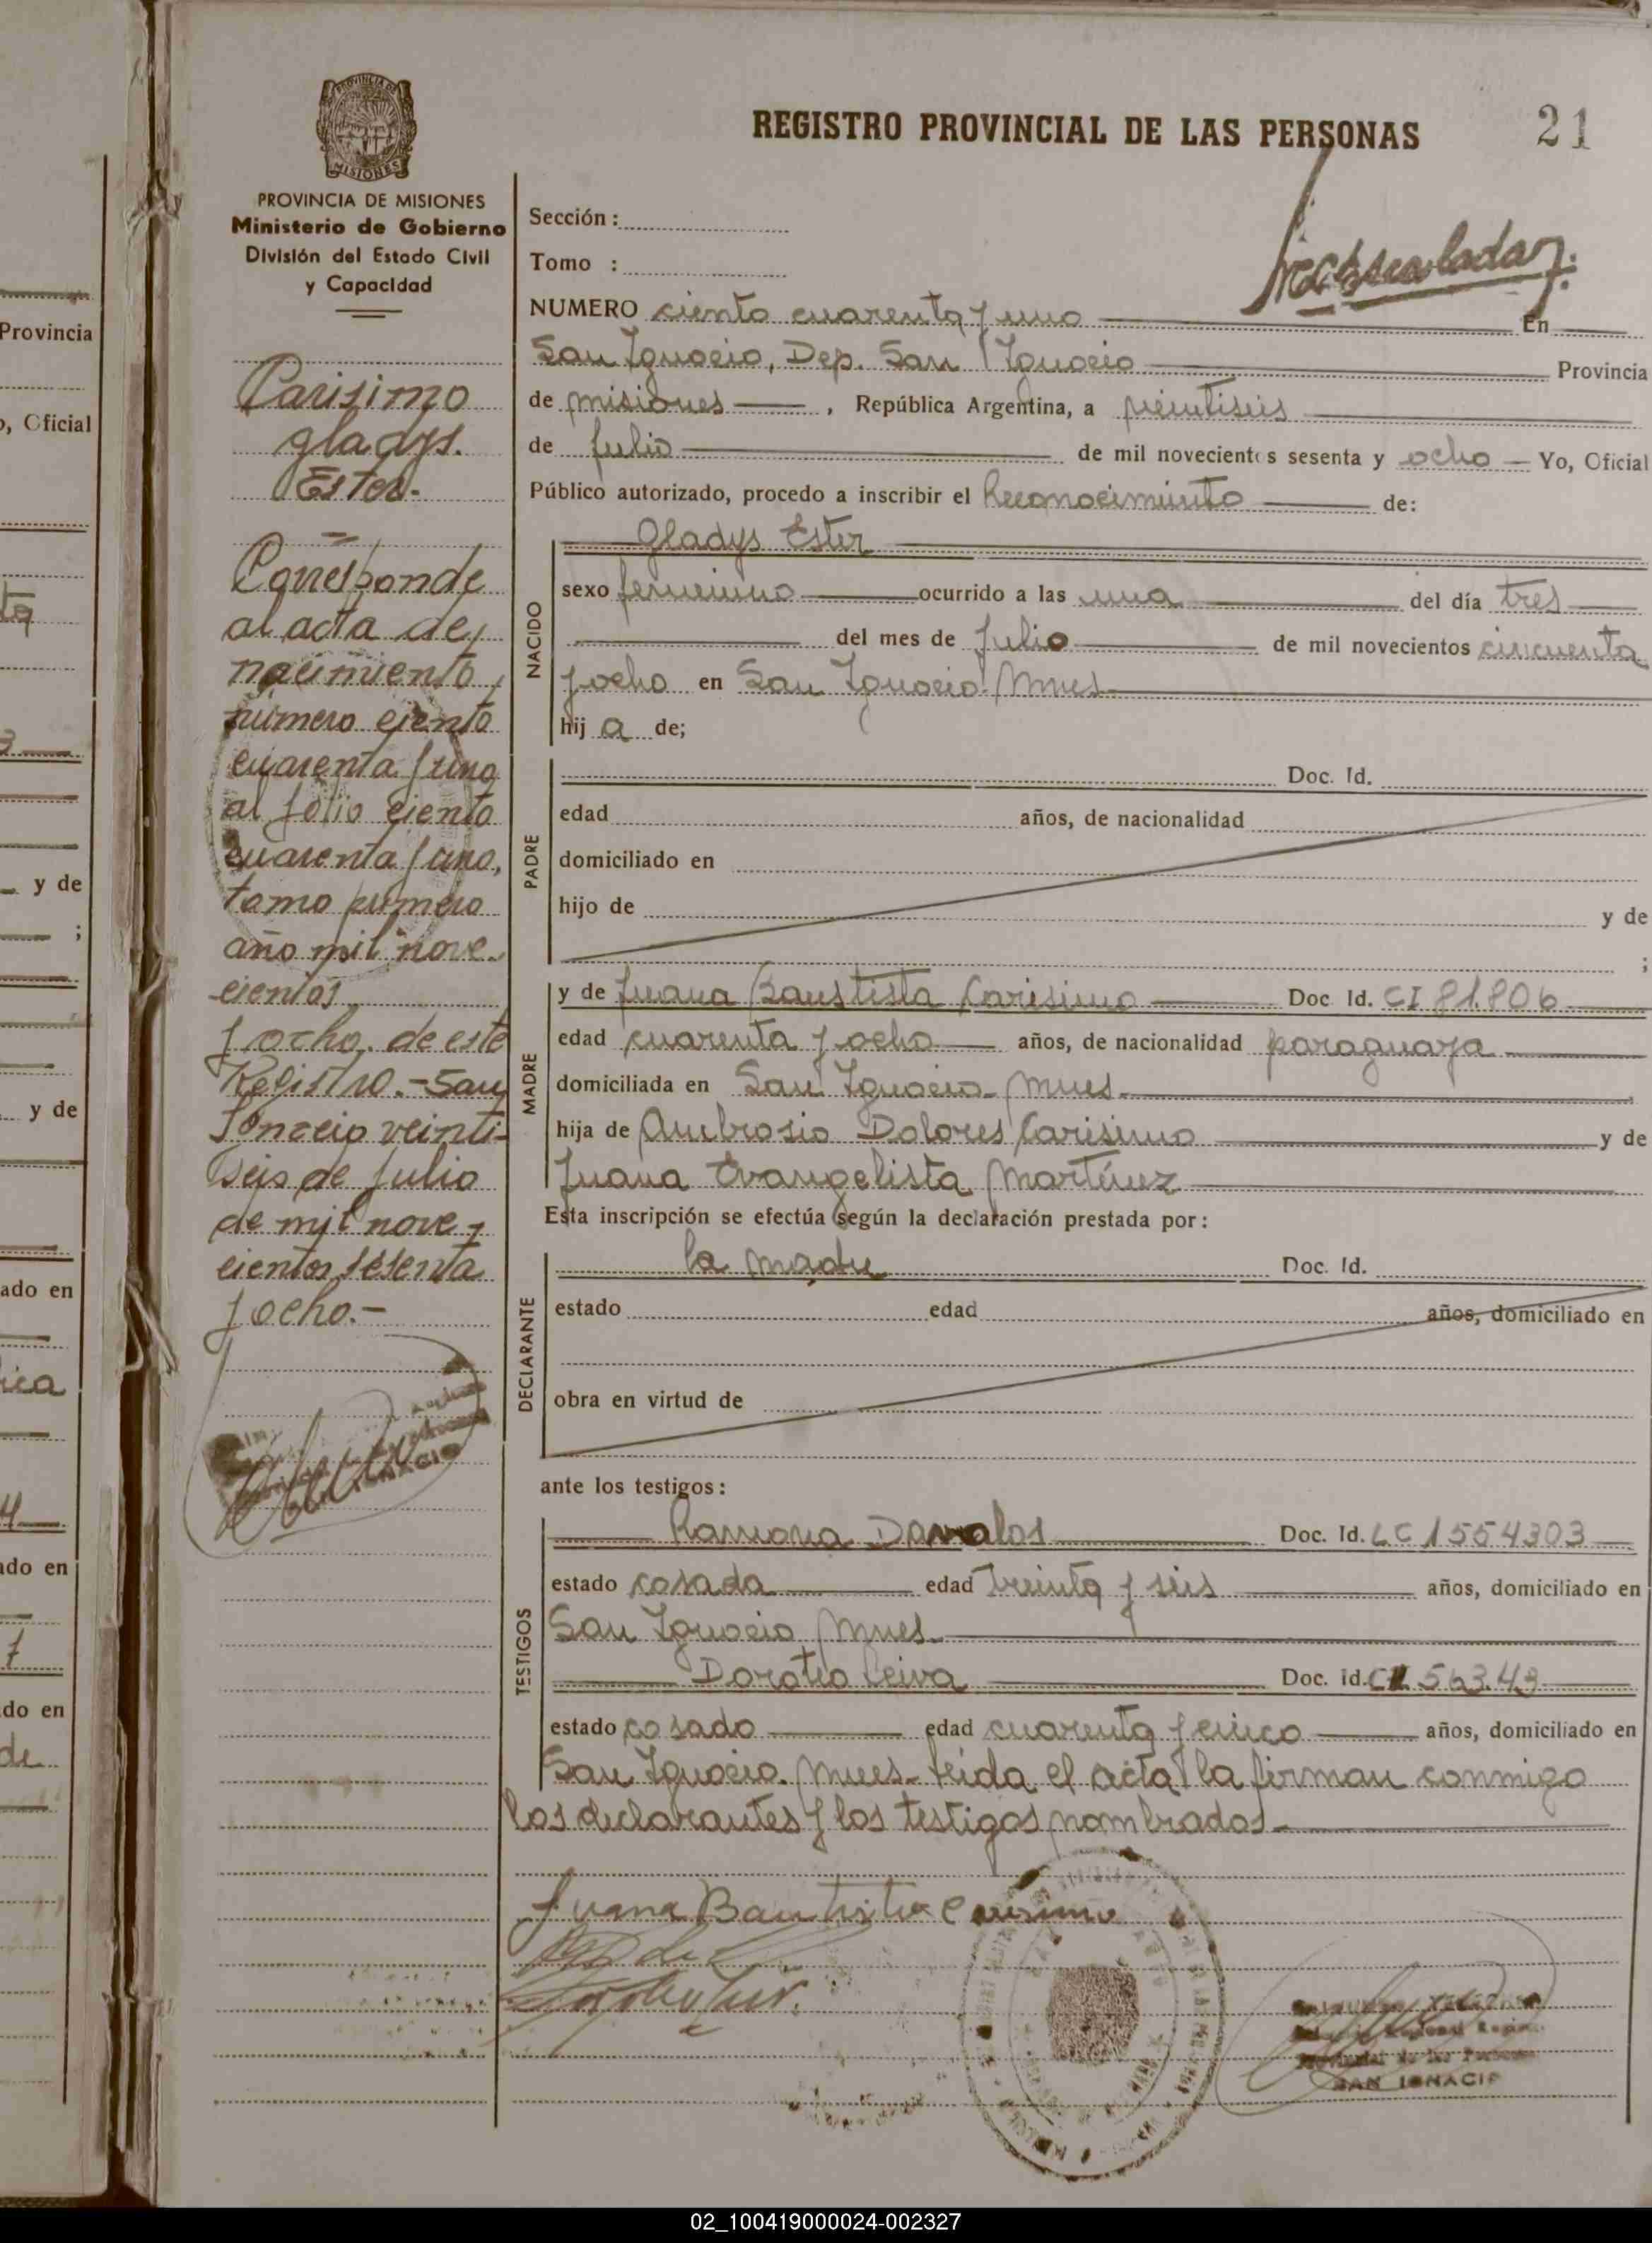 REGISTRO PROVINCIAL DE LAS PERSONAS
21
PROVINCIA DE MISIONES
Ministerio de Gobierno
División del Estado Civil
y Capacidad
Carisimo
Gladys.
Ester.-
Corresponde
al acta de
nacimiento
número ciento
cuarenta y uno
al folio ciento
cuarenta y uno,
tomo primero
año mil nove-
cientos
y ocho. de este
Registro.- San
Ignacio veinti-
seis de Julio
de mil nove-
cientos sesenta
y ocho.-
Sección:
Tomo :
NUMERO ciento cuarenta y uno En
San Ignacio, Dep. San Ignacio Provincia
de Misiones , República Argentina, a veintiseis
de Julio de mil novecientos sesenta y ocho Yo, Oficial
Público autorizado, procedo a inscribir el Reconocimiento de:
NACIDO
Gladys Ester
sexo femenino ocurrido a las una del día tres
del mes de Julio de mil novecientos cincuenta
y ocho en San Ignacio Mnes-
hij a de;
PADRE
Doc. Id.
edad años, de nacionalidad
domiciliado en
hijo de y de
;
MADRE
y de Juana Baustista Carisimo Doc Id. CI 81.806
edad cuarenta y ocho años, de nacionalidad paraguaya
domiciliada en San Ignacio- Mnes-
hija de Ambrosio Dolores Carisimo y de
Juana Evangelista Martínez
Esta inscripción se efectúa según la declaración prestada por:
DECLARANTE
la madre Doc. Id.
estado edad años, domiciliado en
obra en virtud de
ante los testigos:
TESTIGOS
Ramona Davalos Doc. Id. LC 1554303
estado casada edad treinta y seis años, domiciliado en
San Ignacio Mnes-
Doroteo Leiva Doc. Id. CI 563.43
estado casado edad cuarenta y cinco años, domiciliado en
San Ignacio. Mnes- Leida el acta la firman conmigo
los declarantes y los testigos nombrados-
Juana Bautista Carisimo
SAN IGNACIO
Provincia
, Oficial
y de
;
y de
ado en
ado en
do en
02_100419000024-002327